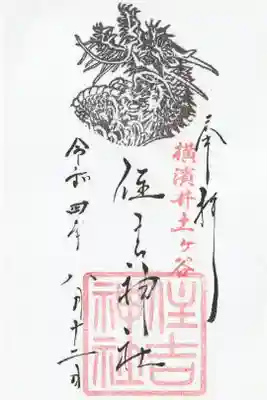 奉拝
横濱井土ヶ谷
住吉神社
住吉
神社
令和四年八月十二日